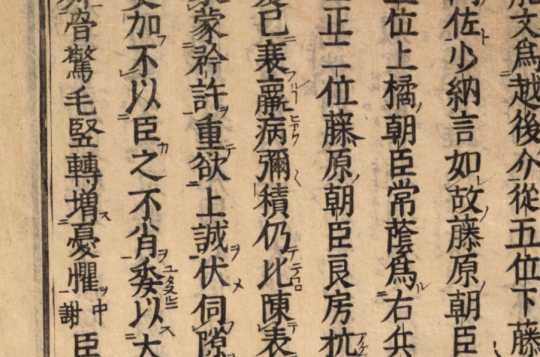 文爲越後介從五位下藤
佐少納言如故藤原朝臣
位上橘朝臣常蔭爲右兵
正二位藤原朝臣良房抗
已衰羸病彌積仍比陳表
蒙矜許重欲上誠伏伺隙
加不以臣之不肖委以大
驚毛竪轉増憂懼中謝臣